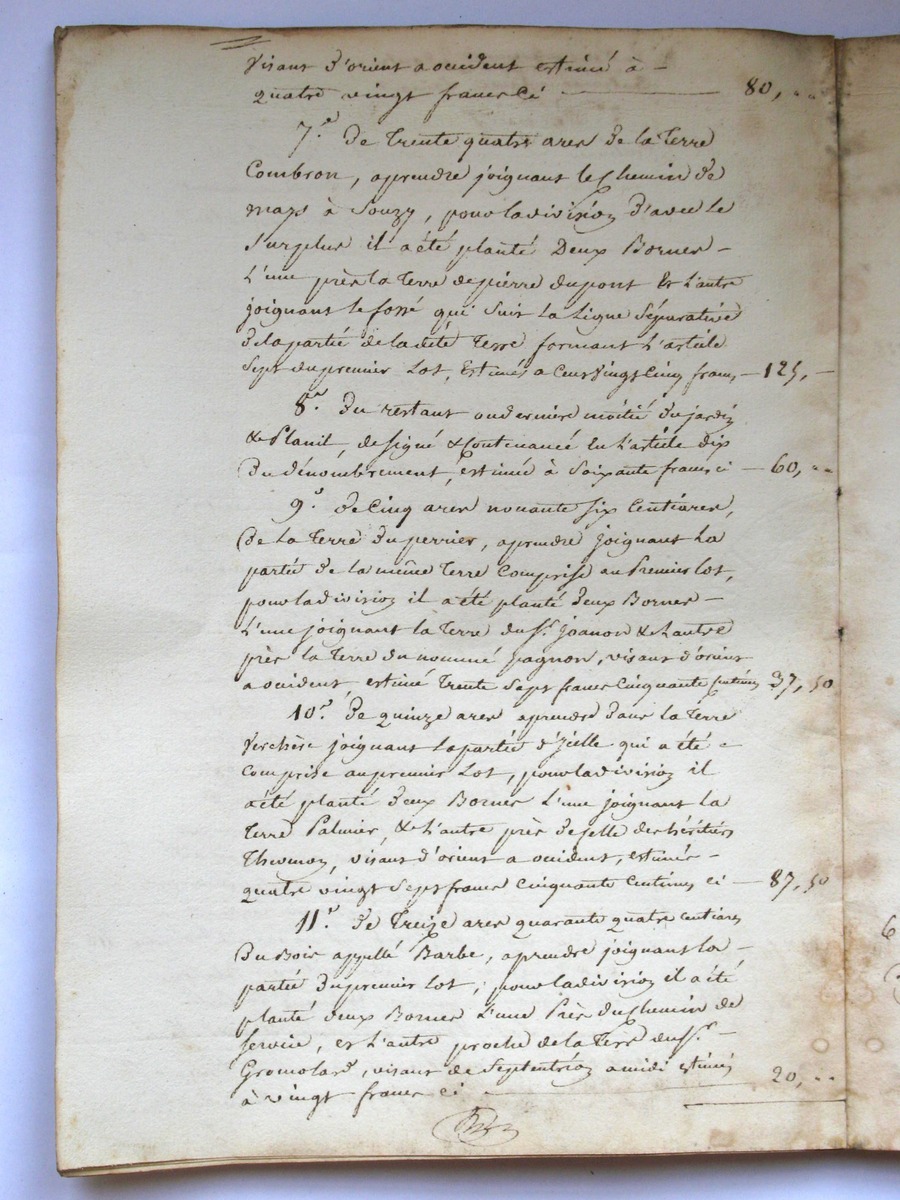 visant d'orient a occident estimé à -
quatre vingt francs ci 80, ..
7.° De Trente quatre ares de la Terre
Combron, aprendre joignant le Chemin de
mays à Souzy, pour la division d'avec le
surplus il a été planté Deux Bornes -
L'une près la Terre de pierre dupont Et L'autre
joignant le fossé qui suit La Ligne Séparative
de la partie de ladite Terre formant L'article
Sept du premier Lot, Estimés a Cent Vingt Cinq francs - 125, -
8.° Du restant ou derniere moitié du jardin
& Planit, designé & Contenancé En L'article dix
Du dénombrement, estimée à Soixante francs ci - 60, ..
9.° de Cinq ares nonante six Centiares,
De La Terre du perrier, aprendre joignant La
partie de la même Terre Comprise au Premier Lot,
pour la division il a été planté deux Bornes -
L'une joignant la Terre du Sr. Joanon & L'autre
près la Terre du nommé pagnon, visant d'orient
a occident estimé Trente Sept francs Cinquante Centimes 37, 50
10.° De quinze ares aprendre dans la Terre
Verchère joignant la partie d'Jcelle qui a été -
Comprise au premier Lot, pour la division il
a été planté deux Bornes L'une joignant la
Terre Palmier, & L'autre près de celle des héritiers
visant d'orient a occident, estimés -
quatre vingt Sept francs Cinquante Centimes ci - 87, 50
11.° De Treize ares quarante quatre Centiares
Du Bois appellé Barbe, aprendre joignant la -
partie du premier Lot, pour la division il a été
planté deux Bornes L'une Près du Chemin de
service, et L'autre proche de la Terre du Sr.
Gromolard, visant de Septentrion a midi estimés
à vingt francs ci 20, ..